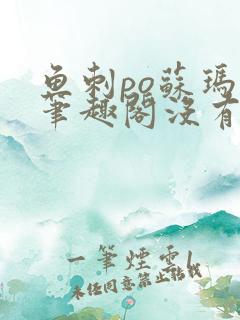 魚刺po蘇瑪
筆趣閣沒有
一筆煙雲
未经同意禁止转载